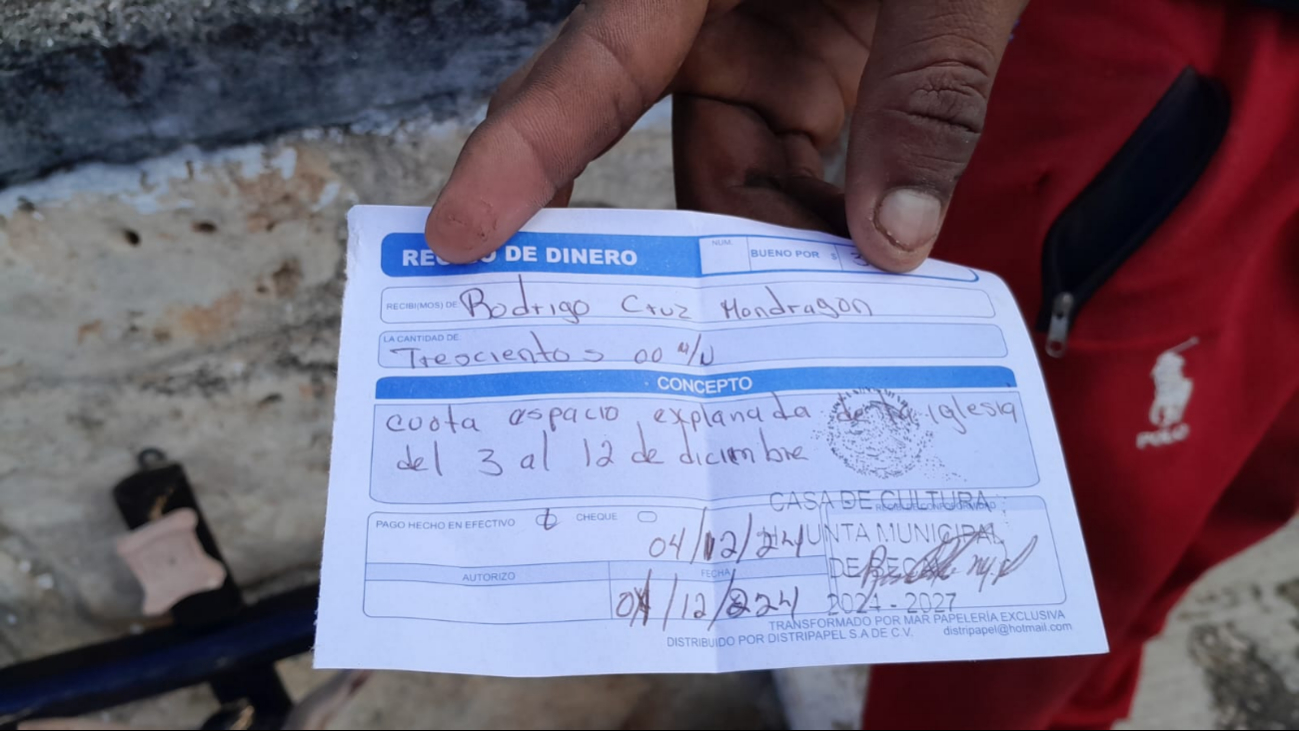 DE DINERO
NUM.
BUENO POR $ 3
RECIBI(MOS) DE Rodrigo Cruz Mondragon
LA CANTIDAD DE
Treocientos 00 M/N
CONCEPTO
cuota espacio explanada de la iglesia
del 3 al 12 de diciembre
CASA DE CULTURA
JUNTA MUNICIPAL
PAGO HECHO EN EFECTIVO CHEQUE
04/12/24
AUTORIZO
FECHA
04/12/224
2024 - 2027
TRANSFORMADO POR MAR PAPELERÍA EXCLUSIVA
DISTRIBUIDO POR DISTRIPAPEL S.A DE C.V. distripapel@hotmail.com
POLO